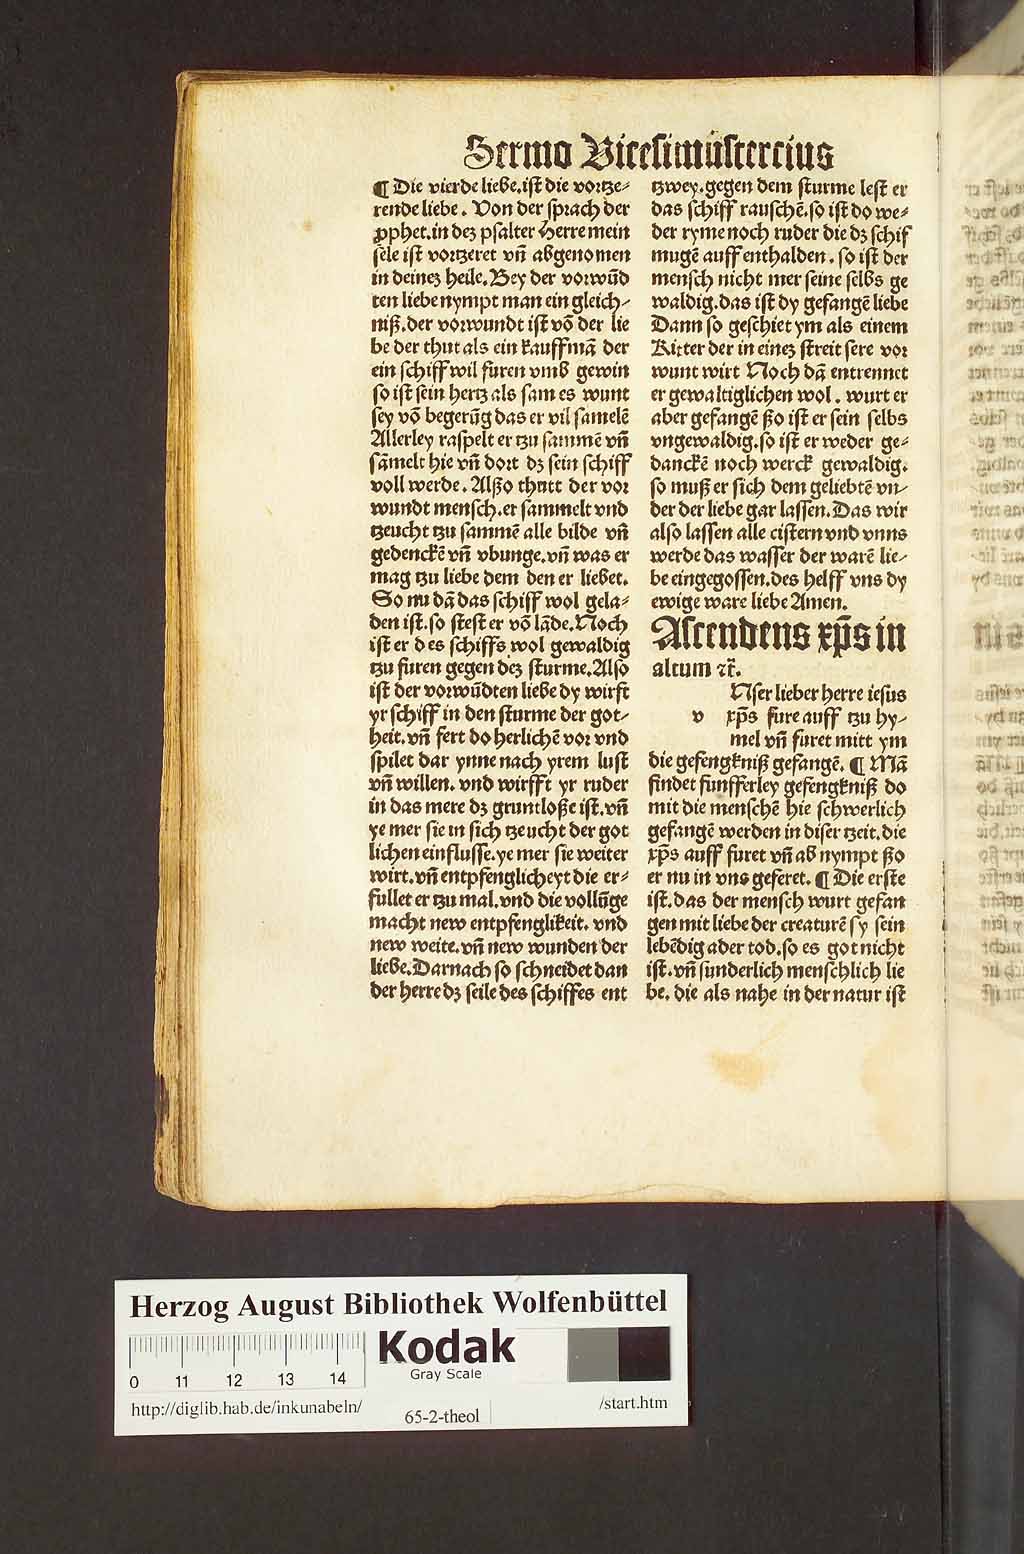 Sermo Vicesimustercius
¶ Die vierde liebe.ist die vortze⸗
rende liebe. Von der sprach der
ꝓphet.in deʒ psalter Herre mein
sele ist vortzeret vn̄ abgenomen
in deineʒ heile. Bey der vorwūd
ten liebe nympt man ein gleich⸗
niß.der vorwundt ist vō der lie
be der thut als ein kauffmā der
ein schiff wil furen vmb gewin
so ist sein hertz als sam es wunt
sey vō begerūg das er vil samelē
Allerley raspelt er tzu sammē vn̄
sāmelt hie vn̄ dort dʒ sein schiff
voll werde. Alßo thutt der vor
wundt mensch.er sammelt vnd
tzeucht tzu sammē alle bilde vn̄
gedenckē vn̄ vbunge.vn̄ was er
mag tzu liebe dem den er liebet.
So nu dā das schiff wol gela⸗
den ist.so stest er vō lāde.Noch
ist er des schiffs wol gewaldig
tzu furen gegen deʒ sturme.Also
ist der vorwūdten liebe dy wirft
yr schiff in den sturme der got⸗
heit.vn̄ fert do herlichē vor vnd
spilet dar ynne nach yrem lust
vn̄ willen. vnd wirfft yr ruder
in das mere dʒ gruntloße ist.vn̄
ye mer sie in sich tzeucht der got
lichen einflusse.ye mer sie weiter
wirt.vn̄ entpfenglicheyt die er⸗
fullet er tzu mal.vnd die vollūge
macht new entpfenglikeit. vnd
new weite.vn̄ new wunden der
liebe.Darnach so schneidet dan
der herre dʒ seile des schiffes ent
tzwey.gegen dem sturme lest er
das schiff rauschē.so ist do we⸗
der ryme noch ruder die dʒ schif
mugē auff enthalden. so ist der
mensch nicht mer seine selbs ge
waldig.das ist dy gefangē liebe
Dann so geschiet ym als einem
Ritter der in eineʒ streit sere vor
wunt wirt Noch dā entrennet
er gewaltiglichen wol. wurt er
aber gefangē ßo ist er sein selbs
vngewaldig.so ist er weder ge⸗
danckē noch werck gewaldig.
so muß er sich dem geliebtē vn⸗
der der liebe gar lassen.Das wir
also lassen alle cistern vnd vnns
werde das wasser der warē lie⸗
be eingegossen.des helff vns dy
ewige ware liebe Amen.
Ascendens xp̄s in
altum ⁊c̄.
Nser lieber herre iesus
v xp̄s fure auff tzu hy⸗
mel vn̄ furet mitt ym
die gefengkniß gefangē. ¶ Mā
findet funfferley gefengkniß do
mit die menschē hie schwerlich
gefangē werden in diser tzeit.die
xp̄s auff furet vn̄ ab nympt ßo
er nu in vns geferet. ¶ Die erste
ist.das der mensch wurt gefan
gen mit liebe der creaturē sy sein
lebēdig ader tod.so es got nicht
ist.vn̄ sunderlich menschlich lie
be. die als nahe in der natur ist
Herzog August Bibliothek Wolfenbüttel
0 11 12 13 14
Kodak
Gray Scale
http://diglib.hab.de/inkunabeln/
65-2-theol
/start.htm